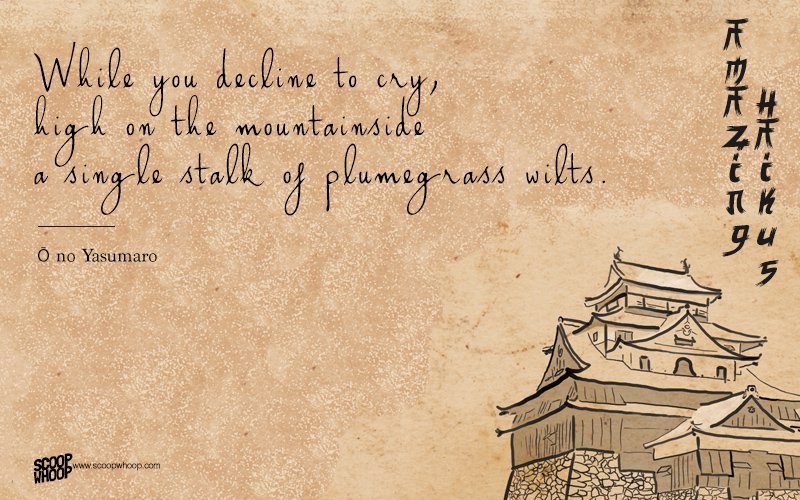 While you decline to cry,
high on the mountainside
a single stalk of plumegrass wilts.
Ō no Yasumaro
AMAZING
HAIKUS
SCOOP
WHOOP
www.scoopwhoop.com